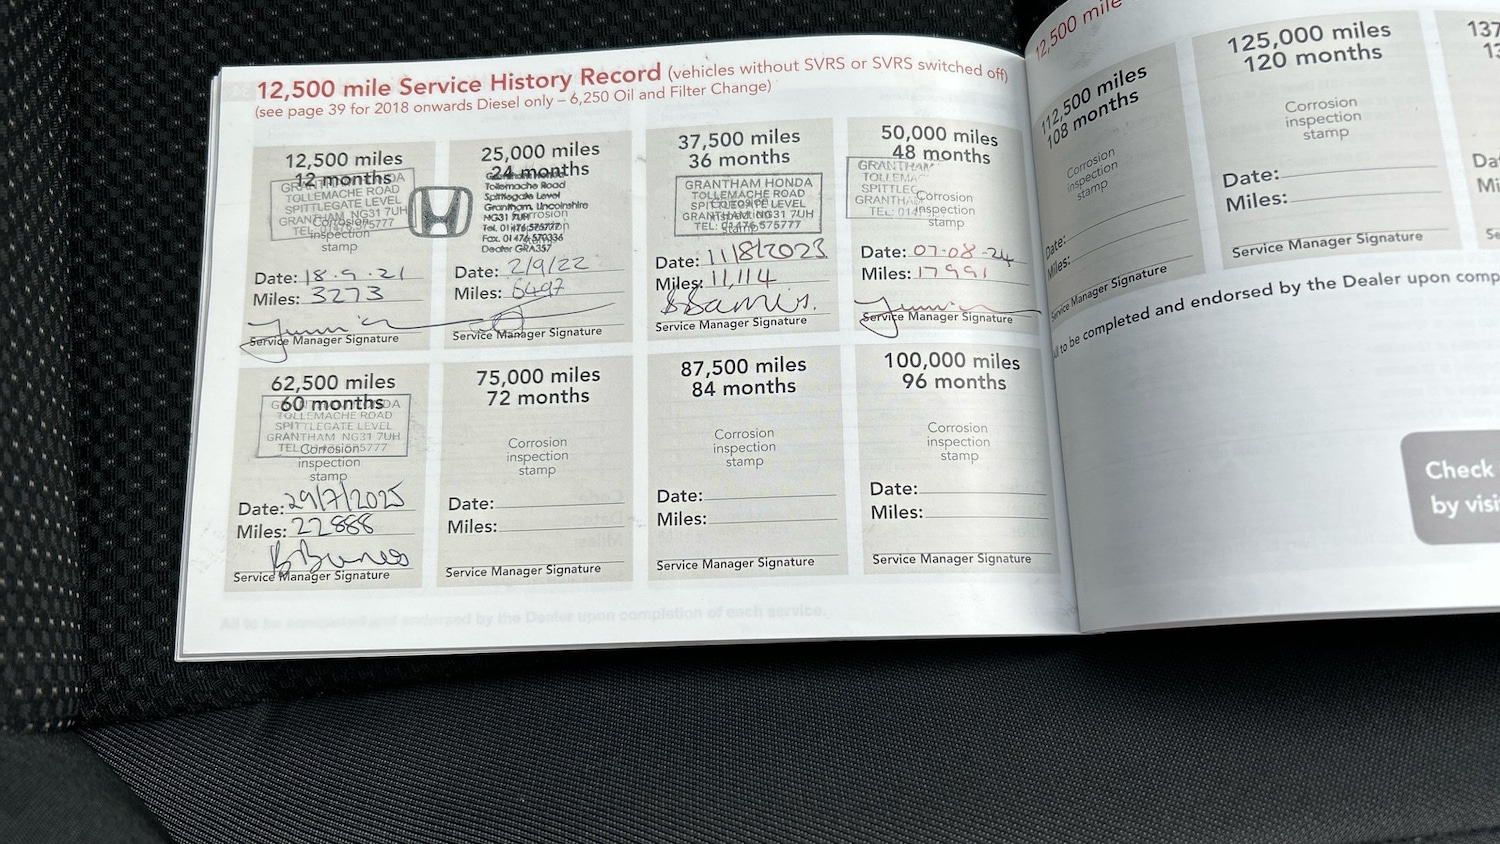 12,500 mile Service History Record (vehicles without SVRS or SVRS switched off)
(see page 39 for 2018 onwards Diesel only – 6,250 Oil and Filter Change)
12,500 miles
12 months
GRANTHAM HONDA
TOLLEMACHE ROAD
SPITTLEGATE LEVEL
GRANTHAM NG31 7UH
TEL: 01476 575777
Corrosion
inspection
stamp
Date: 18.9.21
Miles: 3273
Service Manager Signature
25,000 miles
24 months
Tollemache Road
Spittlegate Level
Grantham, Lincolnshire
NG31 7UH
Tel. 01476 575777
Fax. 01476 570336
Dealer GRA357
Corrosion
Date: 2/9/22
Miles: 6497
Service Manager Signature
37,500 miles
36 months
GRANTHAM HONDA
TOLLEMACHE ROAD
SPITTLEGATE LEVEL
GRANTHAM NG31 7UH
TEL: 01476 575777
Corrosion
inspection
stamp
Date: 11/8/2023
Miles: 11,114
Service Manager Signature
50,000 miles
48 months
GRANTHAM
TOLLEMA
SPITTLEG
GRANTHA
TEL: 014
Corrosion
inspection
stamp
Date: 07-08-24
Miles: 17991
Service Manager Signature
62,500 miles
60 months
GRANTHAM HONDA
TOLLEMACHE ROAD
SPITTLEGATE LEVEL
GRANTHAM NG31 7UH
TEL: 01476 575777
Corrosion
inspection
stamp
Date: 29/7/2025
Miles: 22888
Service Manager Signature
75,000 miles
72 months
Corrosion
inspection
stamp
Date:
Miles:
Service Manager Signature
87,500 miles
84 months
Corrosion
inspection
stamp
Date:
Miles:
Service Manager Signature
100,000 miles
96 months
Corrosion
inspection
stamp
Date:
Miles:
Service Manager Signature
All to be completed and endorsed by the Dealer upon completion of each service.
12,500 mile
112,500 miles
108 months
Corrosion
inspection
stamp
Date:
Miles:
Service Manager Signature
125,000 miles
120 months
Corrosion
inspection
stamp
Date:
Miles:
Service Manager Signature
137
13
Da
Mi
Se
All to be completed and endorsed by the Dealer upon comp
Check
by visi